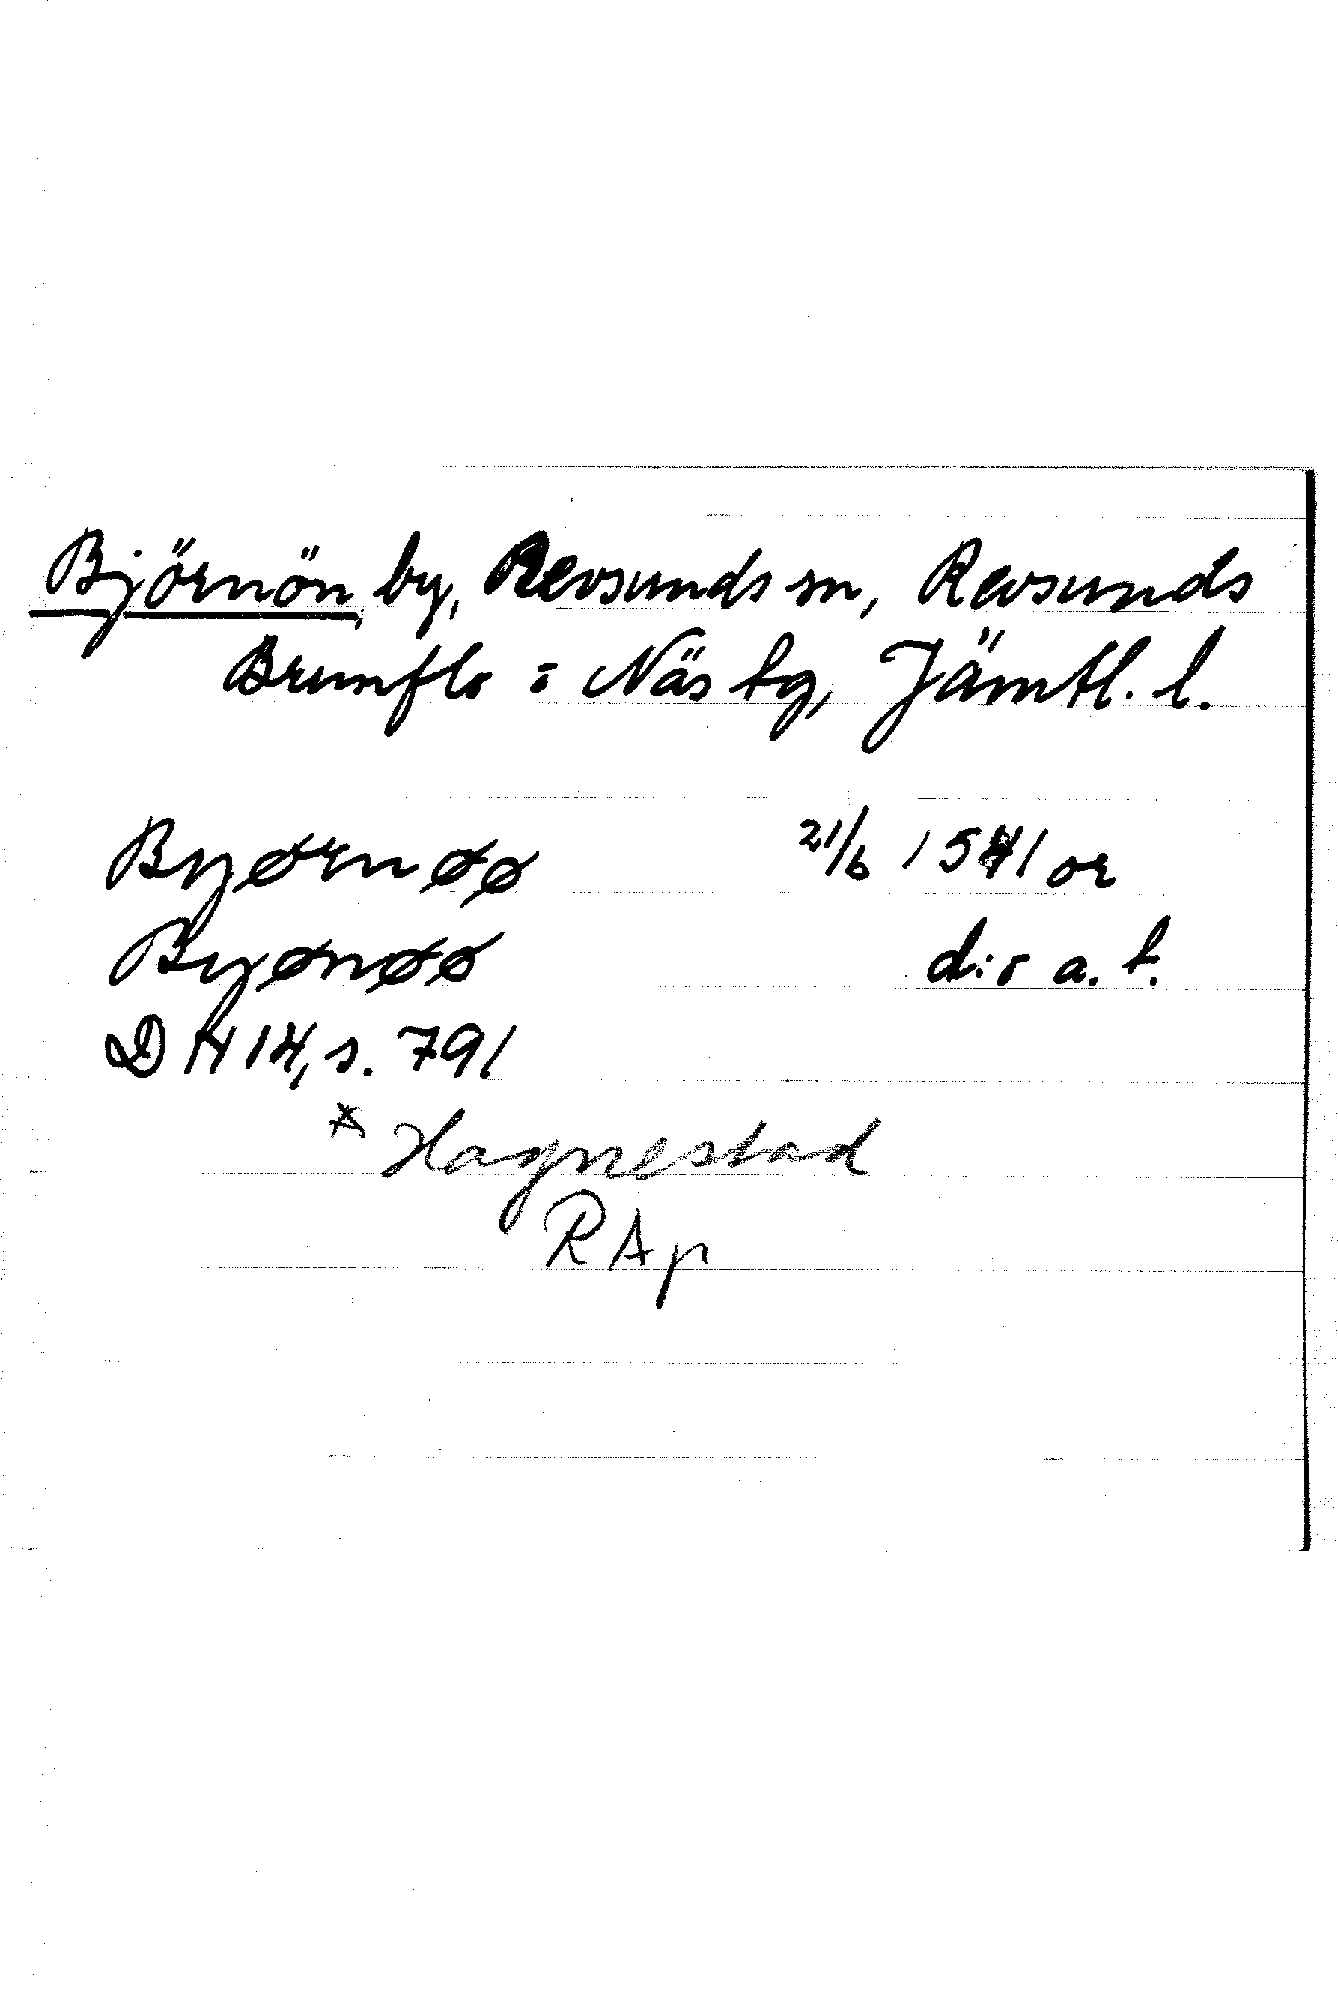 Björnön by, Revsunds sn, Revsunds
Brunflo : Näs tg, Jämtl. l.
Byørnøø 21/6 1541 or
Byønøø d:o a. t.
DN 14, s. 791
* Hagnestad
RAp